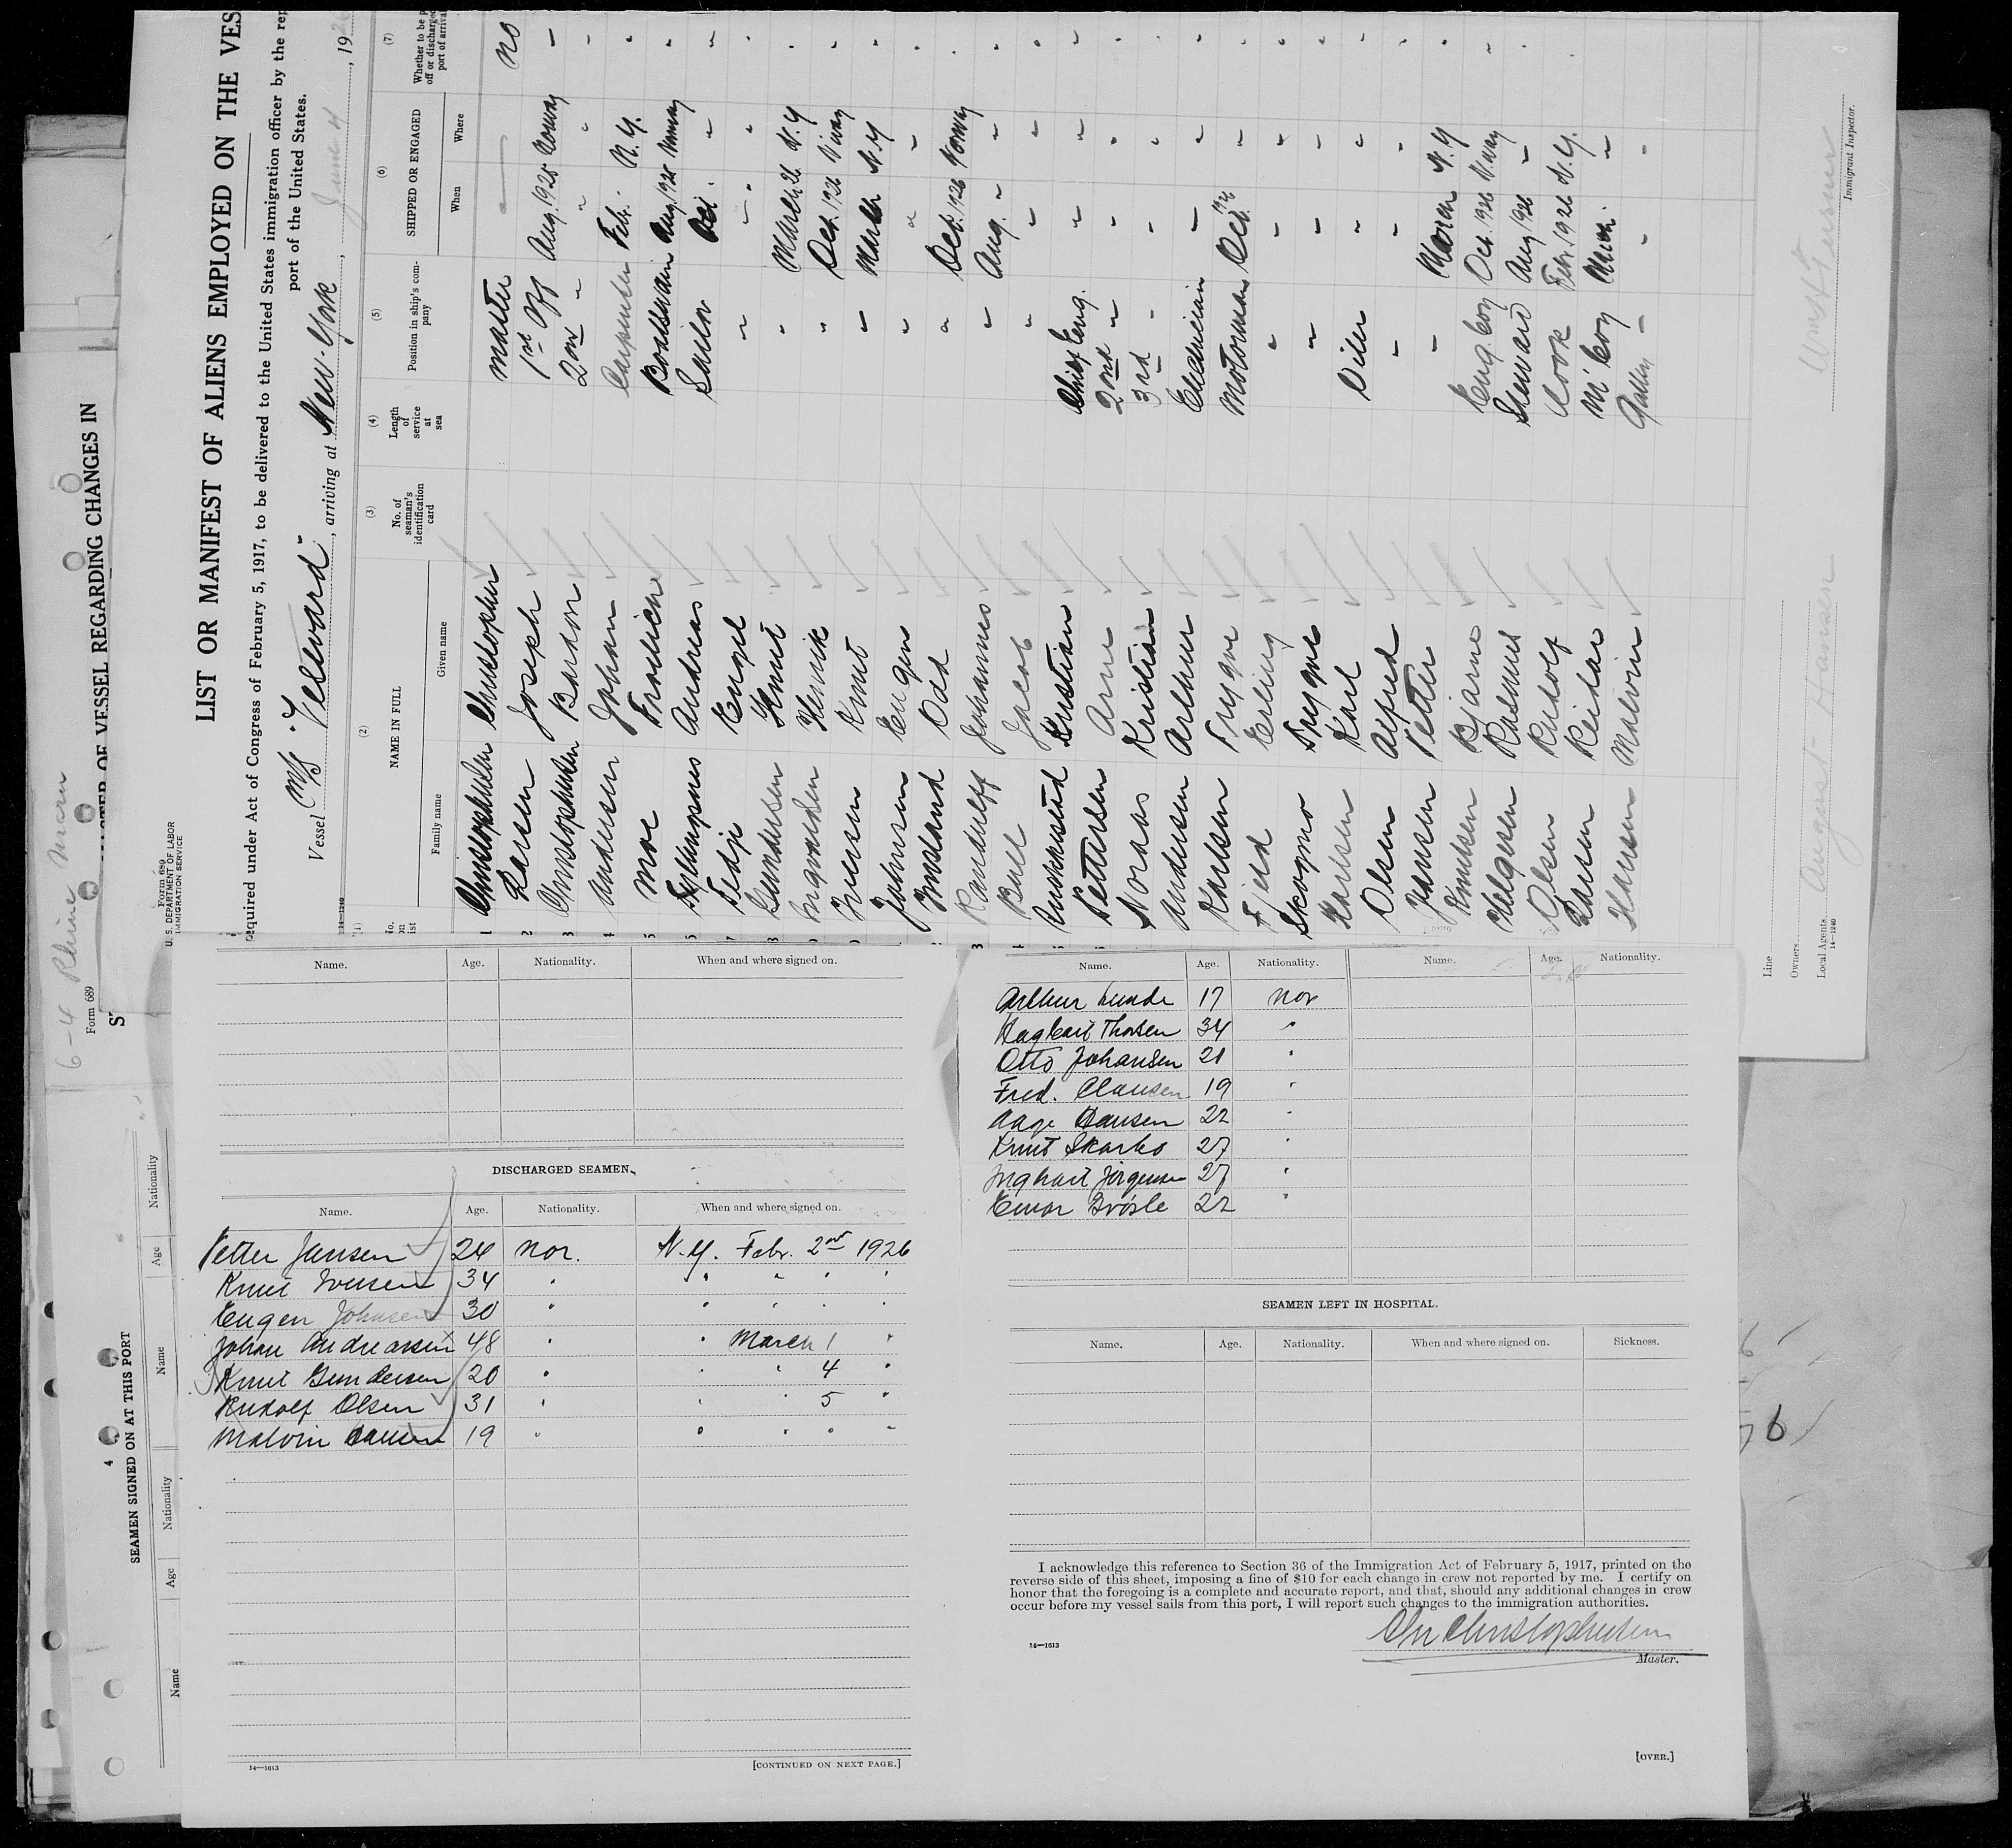 6-4 Rhine Maru
Form 689
OF VESSEL REGARDING CHANGES IN
4
SEAMEN SIGNED ON AT THIS PORT
Name Age Nationality Name Age Nationality
Form 689
U. S. DEPARTMENT OF LABOR
IMMIGRATION SERVICE
LIST OR MANIFEST OF ALIENS EMPLOYED ON THE VES
equired under Act of Congress of February 5, 1917, to be delivered to the United States immigration officer by the rep
port of the United States.
Vessel M/S "Vestvard", arriving at New-York, June 4, 192
14—1240
(1) (2) (3) (4) (5) (6) (7)
No. on list NAME IN FULL No. of seaman's identification card Length of service at sea Position in ship's company SHIPPED OR ENGAGED Whether to be p off or discharged port of arrival
Family name Given name When Where
1 Christophersen Christopher Master — no
2 Larsen Joseph 1st Off Aug. 1925 Norway -
3 Christophersen 2nd " " " -
4 Andersen Johan Carpenter Febr. N.Y. "
5 Moe Boatswain Aug. 1925 Norway "
Andreas Sailor Oct. " "
7 Tedje " " " "
8 Gundersen Knut " March 26 N.Y "
Henrik " Oct. 1926 "
Iversen Knut " March N.Y "
Johnsen Eugen " " " "
Odd " Oct. 1926 Norway "
Johannes " Aug. " " "
Jacob " " " "
Kristian Chief Eng. " " "
Pettersen Arne 2nd " " " "
Noraas Kristian 3rd " " " "
Andersen Arthur Electrician " " "
Karlsen Trygve Motorman Oct. 1926 " "
Fjeld Erling " " " "
Skogmo Trygve " " " "
Karlsen Karl Oiler " " "
Olsen Alfred " " " "
Jansen Petter " March N.Y "
Knutsen Bjarne Eng. boy Oct. 1926 "
Helgesen Rasmus Steward Aug 1926 " "
Olsen Rudolf Cook Febr. 1926 N.Y.
Larsen Reidar M. boy March "
Hansen Malvin Galley " " "
Line
Owners
Local Agents August Hansen
14—1240
Immigrant Inspector.
Name. Age. Nationality. When and where signed on.
DISCHARGED SEAMEN.
Name. Age. Nationality. When and where signed on.
Petter Jansen 24 nor. N.Y. Febr. 2nd 1926
Knut Iversen 34 " " " " "
Eugen Johnsen 30 " " " " "
Johan Andreassen 48 " " March 1 "
Knut Gundersen 20 " " " 4 "
Rudolf Olsen 31 " " " 5 "
Malvin Hansen 19 " " " " "
14—1613
[CONTINUED ON NEXT PAGE.]
Name. Age. Nationality. Name. Age. Nationality.
Arthur Lunde 17 nor
Hagbart Thorsen 34 "
Otto Johansen 21 "
Fred. Clausen 19 "
Aage Hansen 22 "
Knut Skarbo 27 "
Ingbart Jörgensen 27 "
Einar 22 "
SEAMEN LEFT IN HOSPITAL.
Name. Age. Nationality. When and where signed on. Sickness.
I acknowledge this reference to Section 36 of the Immigration Act of February 5, 1917, printed on the
reverse side of this sheet, imposing a fine of $10 for each change in crew not reported by me. I certify on
honor that the foregoing is a complete and accurate report, and that, should any additional changes in crew
occur before my vessel sails from this port, I will report such changes to the immigration authorities.
14—1613
Chr Christophersen
Master.
[OVER.]